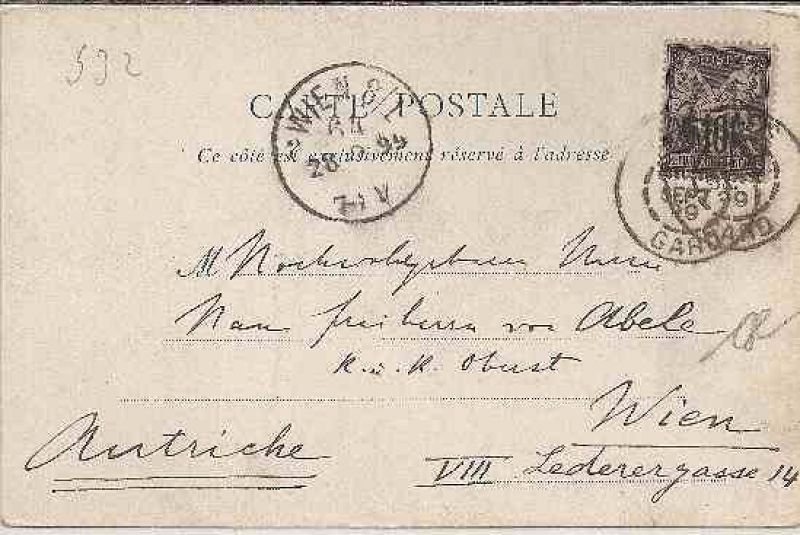 592
CARTE POSTALE
Ce côté est exclusivement réservé à l'adresse
WIEN 8/1
99
7-8 V
10c
SEPT 99
GARD
M Hochwohlgeboren Herrn
Karl Freiherrn von Abele
k. u. k. Oberst
Wien
Autriche
VIII Lederergasse 14